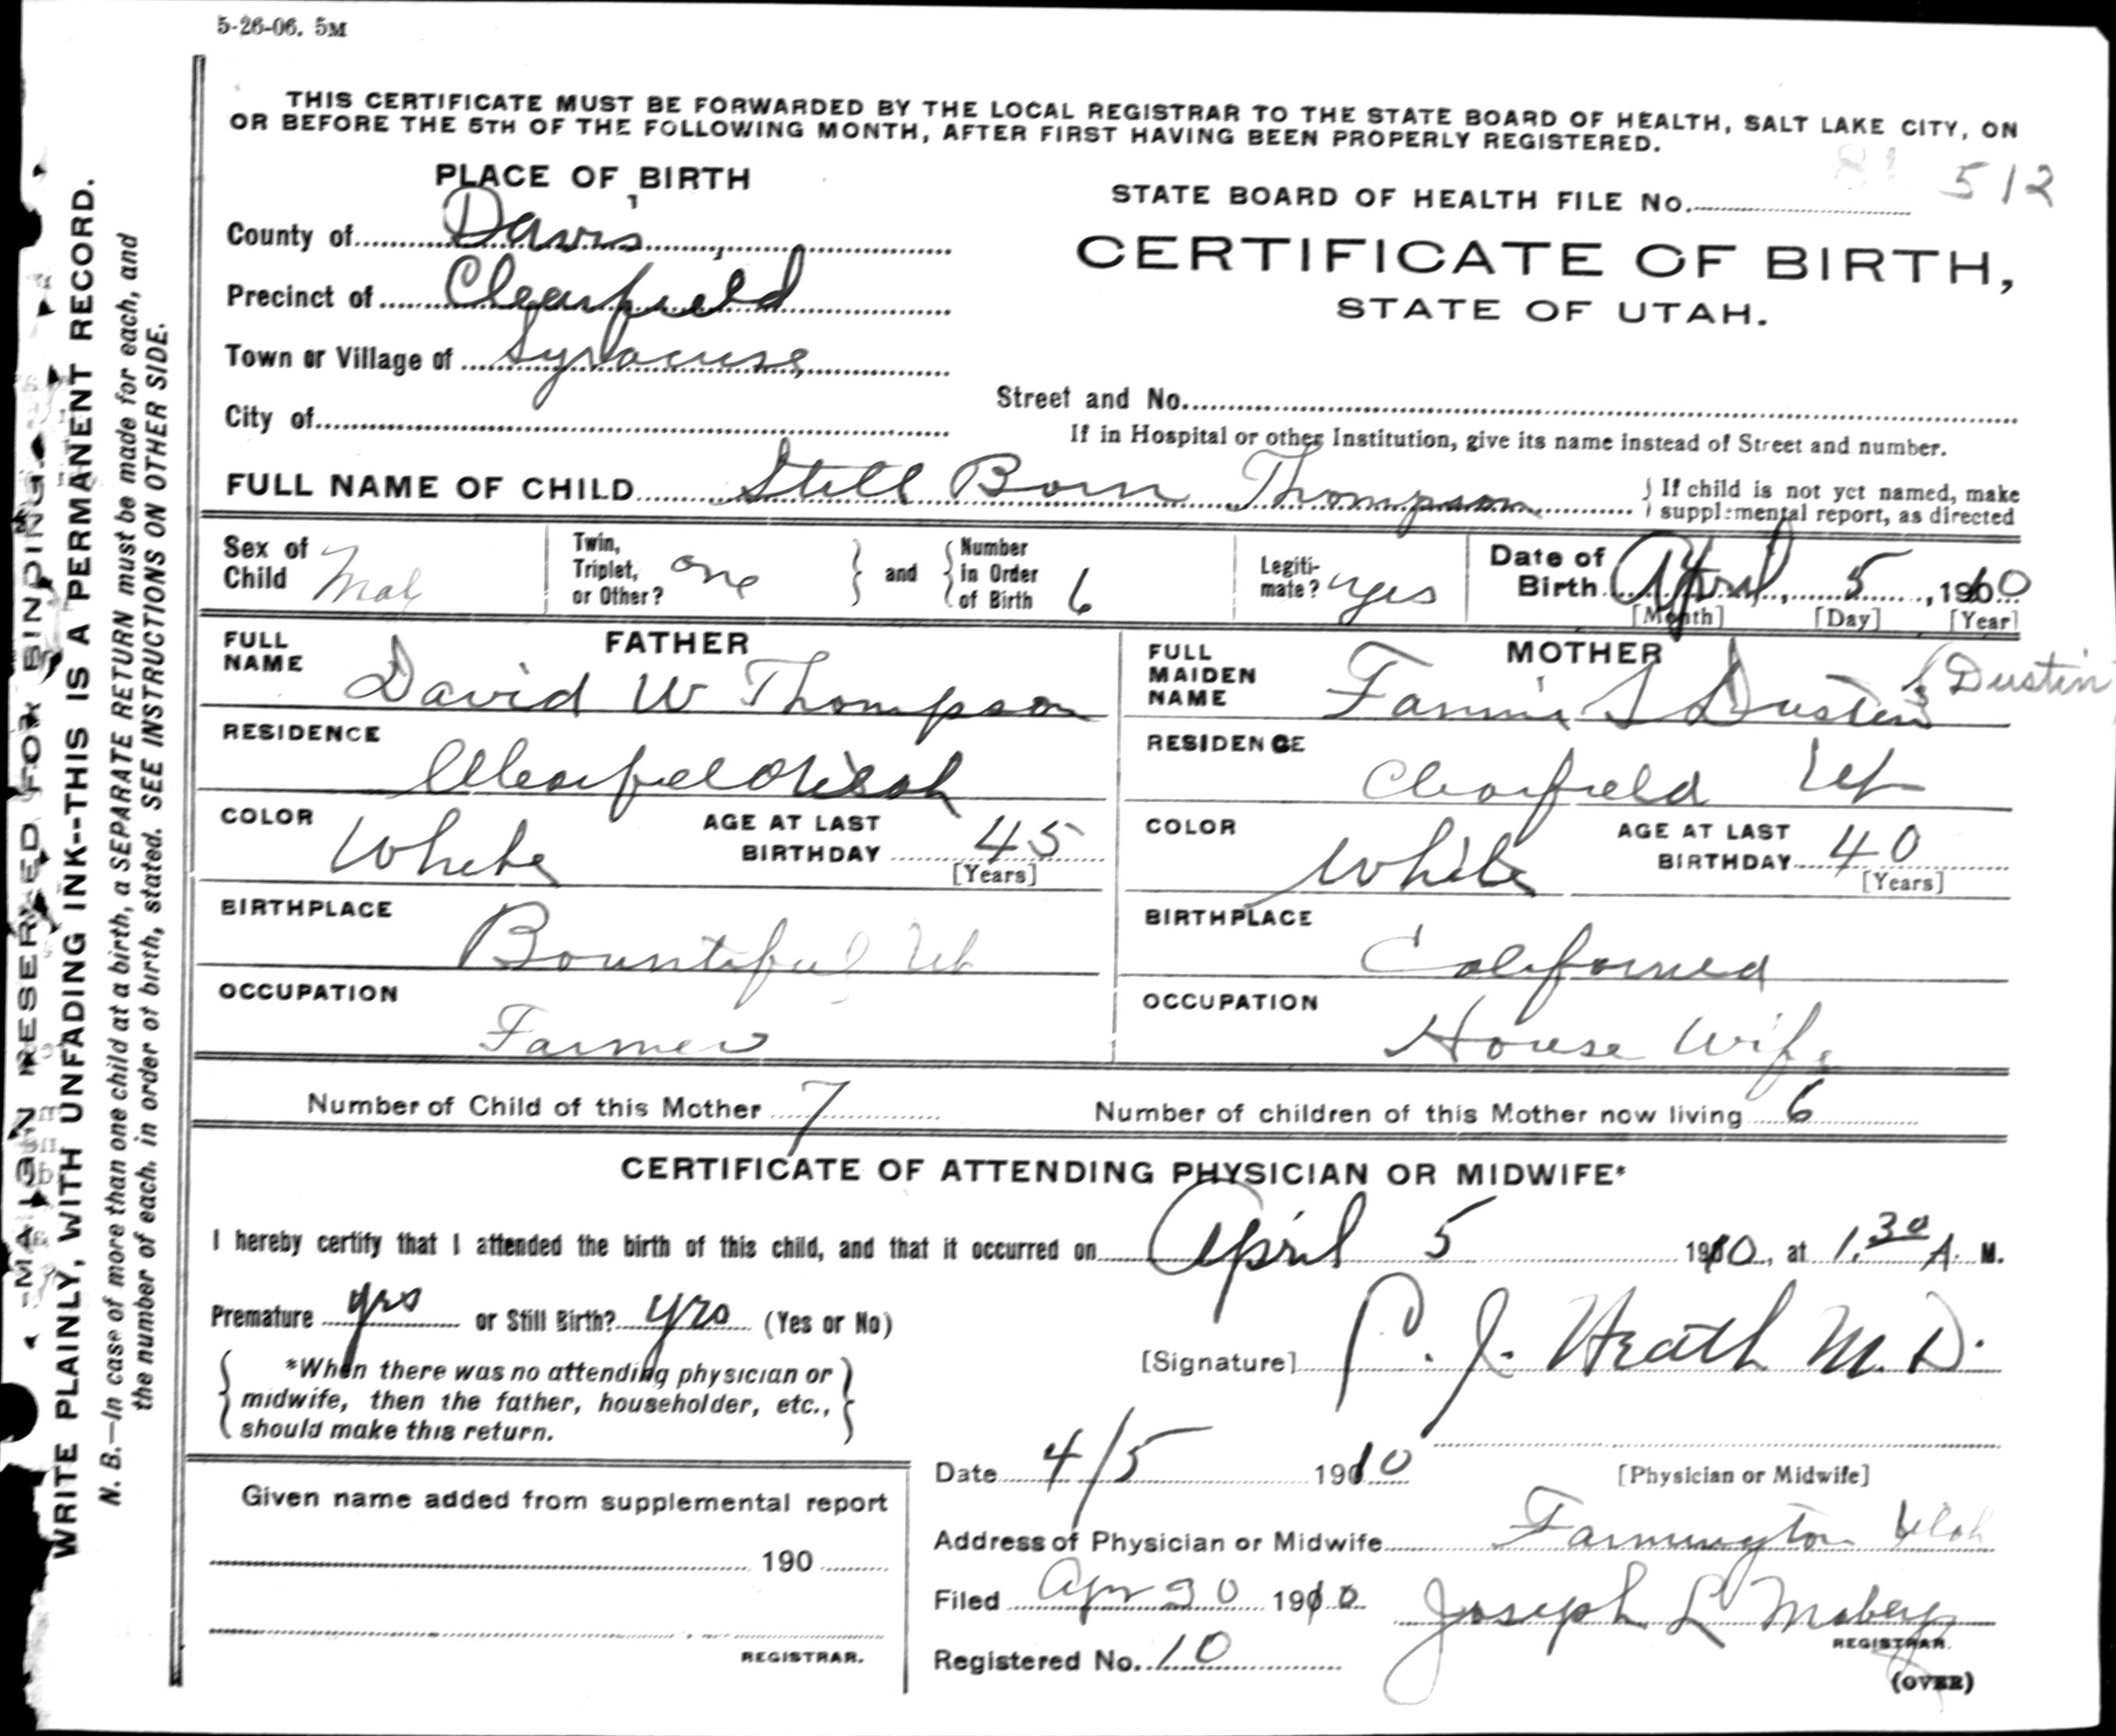 5-26-06. 5M
THIS CERTIFICATE MUST BE FORWARDED BY THE LOCAL REGISTRAR TO THE STATE BOARD OF HEALTH, SALT LAKE CITY, ON
OR BEFORE THE 5TH OF THE FOLLOWING MONTH, AFTER FIRST HAVING BEEN PROPERLY REGISTERED.
PLACE OF BIRTH
County of Davis
Precinct of Clearfield
Town or Village of Syracuse
City of
STATE BOARD OF HEALTH FILE No. 81 512
CERTIFICATE OF BIRTH,
STATE OF UTAH.
Street and No.
If in Hospital or other Institution, give its name instead of Street and number.
FULL NAME OF CHILD Still Born Thompson
If child is not yet named, make
supplemental report, as directed
Sex of Child Mal
Twin, Triplet, or Other? one
and
Number in Order of Birth 6
Legitimate? yes
Date of Birth April 5, 1910
[Month] [Day] [Year]
FATHER
FULL NAME David W Thompson
RESIDENCE Clearfield Utah
COLOR White
AGE AT LAST BIRTHDAY 45
[Years]
BIRTHPLACE Bountiful Ut
OCCUPATION Farmer
MOTHER
FULL MAIDEN NAME Fannie S Dustin (Dustin
RESIDENCE Clearfield Ut
COLOR White
AGE AT LAST BIRTHDAY 40
[Years]
BIRTHPLACE
OCCUPATION House Wife
Number of Child of this Mother 7
Number of children of this Mother now living 6
CERTIFICATE OF ATTENDING PHYSICIAN OR MIDWIFE*
I hereby certify that I attended the birth of this child, and that it occurred on April 5 1910, at 1.30 A. M.
Premature yes or Still Birth? yes (Yes or No)
*When there was no attending physician or
midwife, then the father, householder, etc.,
should make this return.
[Signature] P. J. Heath M. D.
[Physician or Midwife]
Date 4/5 1910
Address of Physician or Midwife Farmington Utah
Filed Apr 30 1910 Joseph L
REGISTRAR.
Registered No. 10
(OVER)
Given name added from supplemental report
190
REGISTRAR.
MARGIN RESERVED FOR BINDING.
WRITE PLAINLY, WITH UNFADING INK--THIS IS A PERMANENT RECORD.
N. B.—In case of more than one child at a birth, a SEPARATE RETURN must be made for each, and
the number of each, in order of birth, stated. SEE INSTRUCTIONS ON OTHER SIDE.